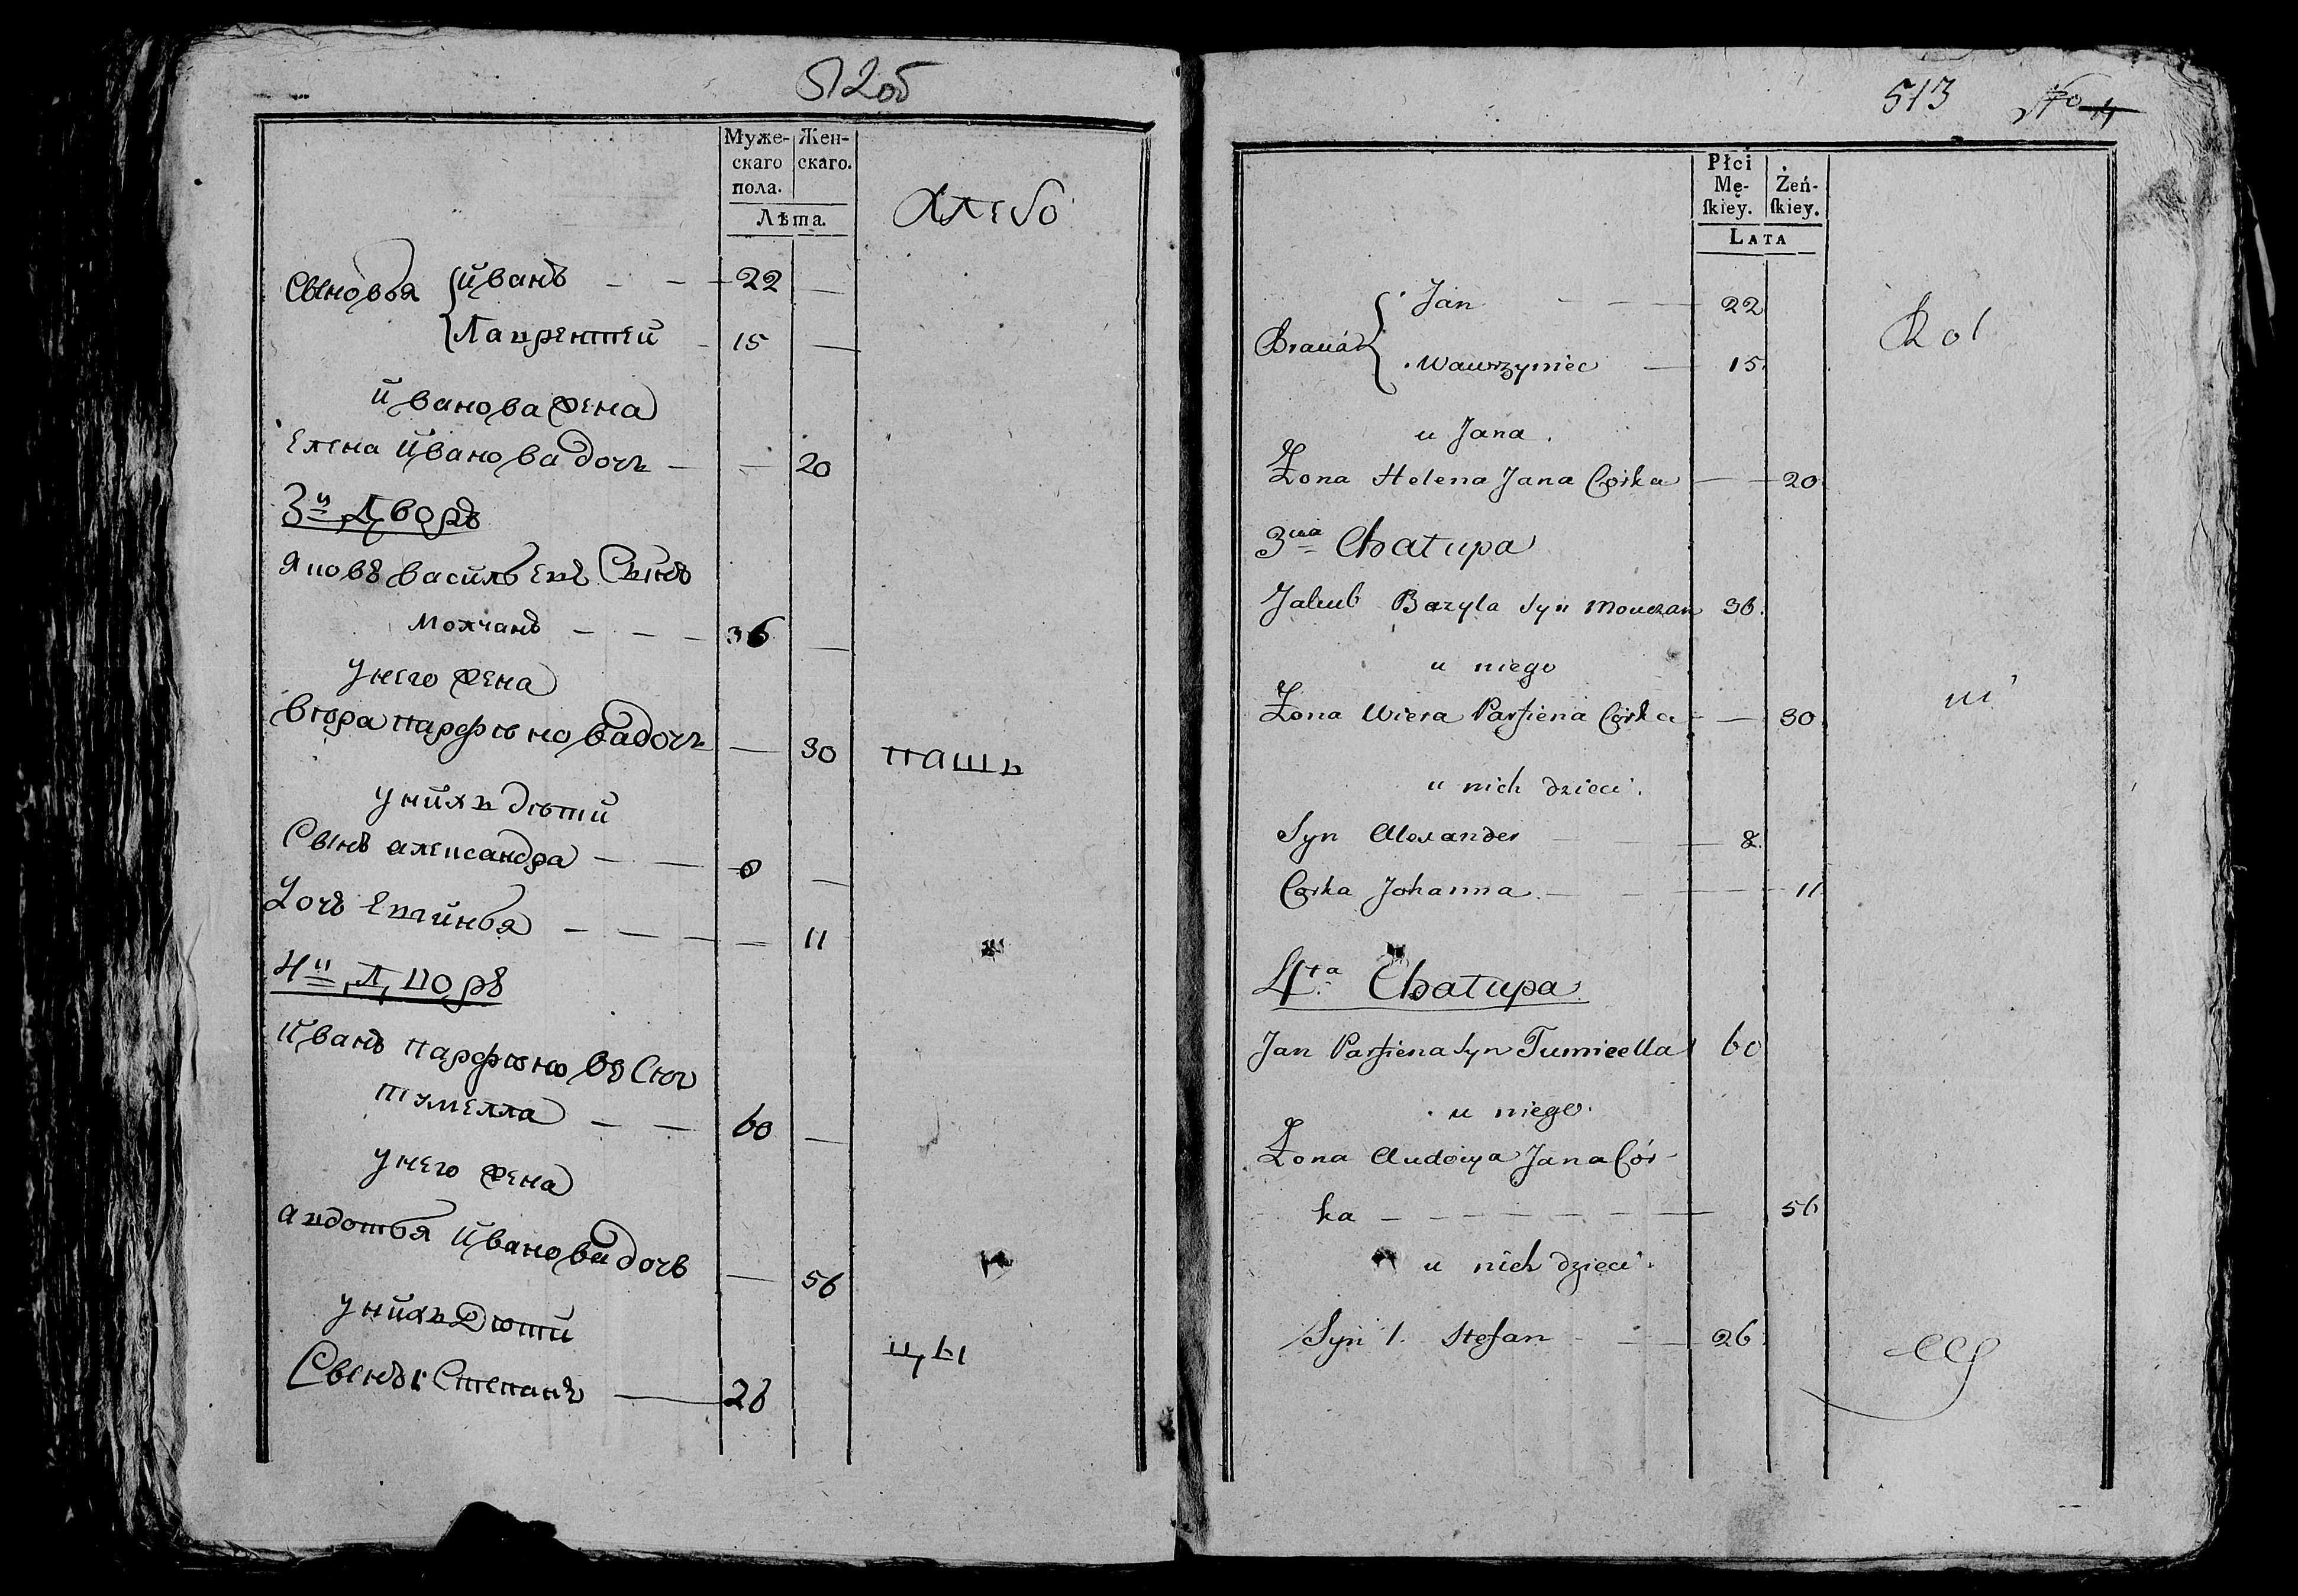 512об
Муже- Жен-
скаго скаго.
пола.
Лѣта.
Хлебо
Сыновья Иванъ 22
Лаврентей 15
Иванова жена
Елена Иванова дочь 20
3й Дворъ
Яковъ Васильевъ Сынъ
Молчанъ 36
У него жена
Вѣра Парфѣнова дочь 30
пашь
У нихъ дѣти
Сынъ Александра 8
Дочь Евгинья 11
4й Дворъ
Иванъ Парфѣновъ Сынъ
Тумелла 60
У него жена
Авдотья Иванова дочь 56
У нихъ дѣти
цы
Сынъ 1. Степанъ 26
513 No 4
Płci
Mę- Żeń-
skiey. skiey.
LATA
Jan 22
Rol
Wawrzyniec 15
u Jana
Żona Helena Jana Corka 20
3cia Chałupa
Jakub Bazyla Syn Mouczan 36
u niego
ni
Żona Wiera Parfiena Corka 30
u nich dzieci
Syn Alexander 8
Corka Johanna 11
4ta Chałupa
Jan Parfiena Syn Tumiella 60
u niego
Żona Audocya Jana Cór-
ka 56
u nich dzieci
Syn 1. Stefan 26